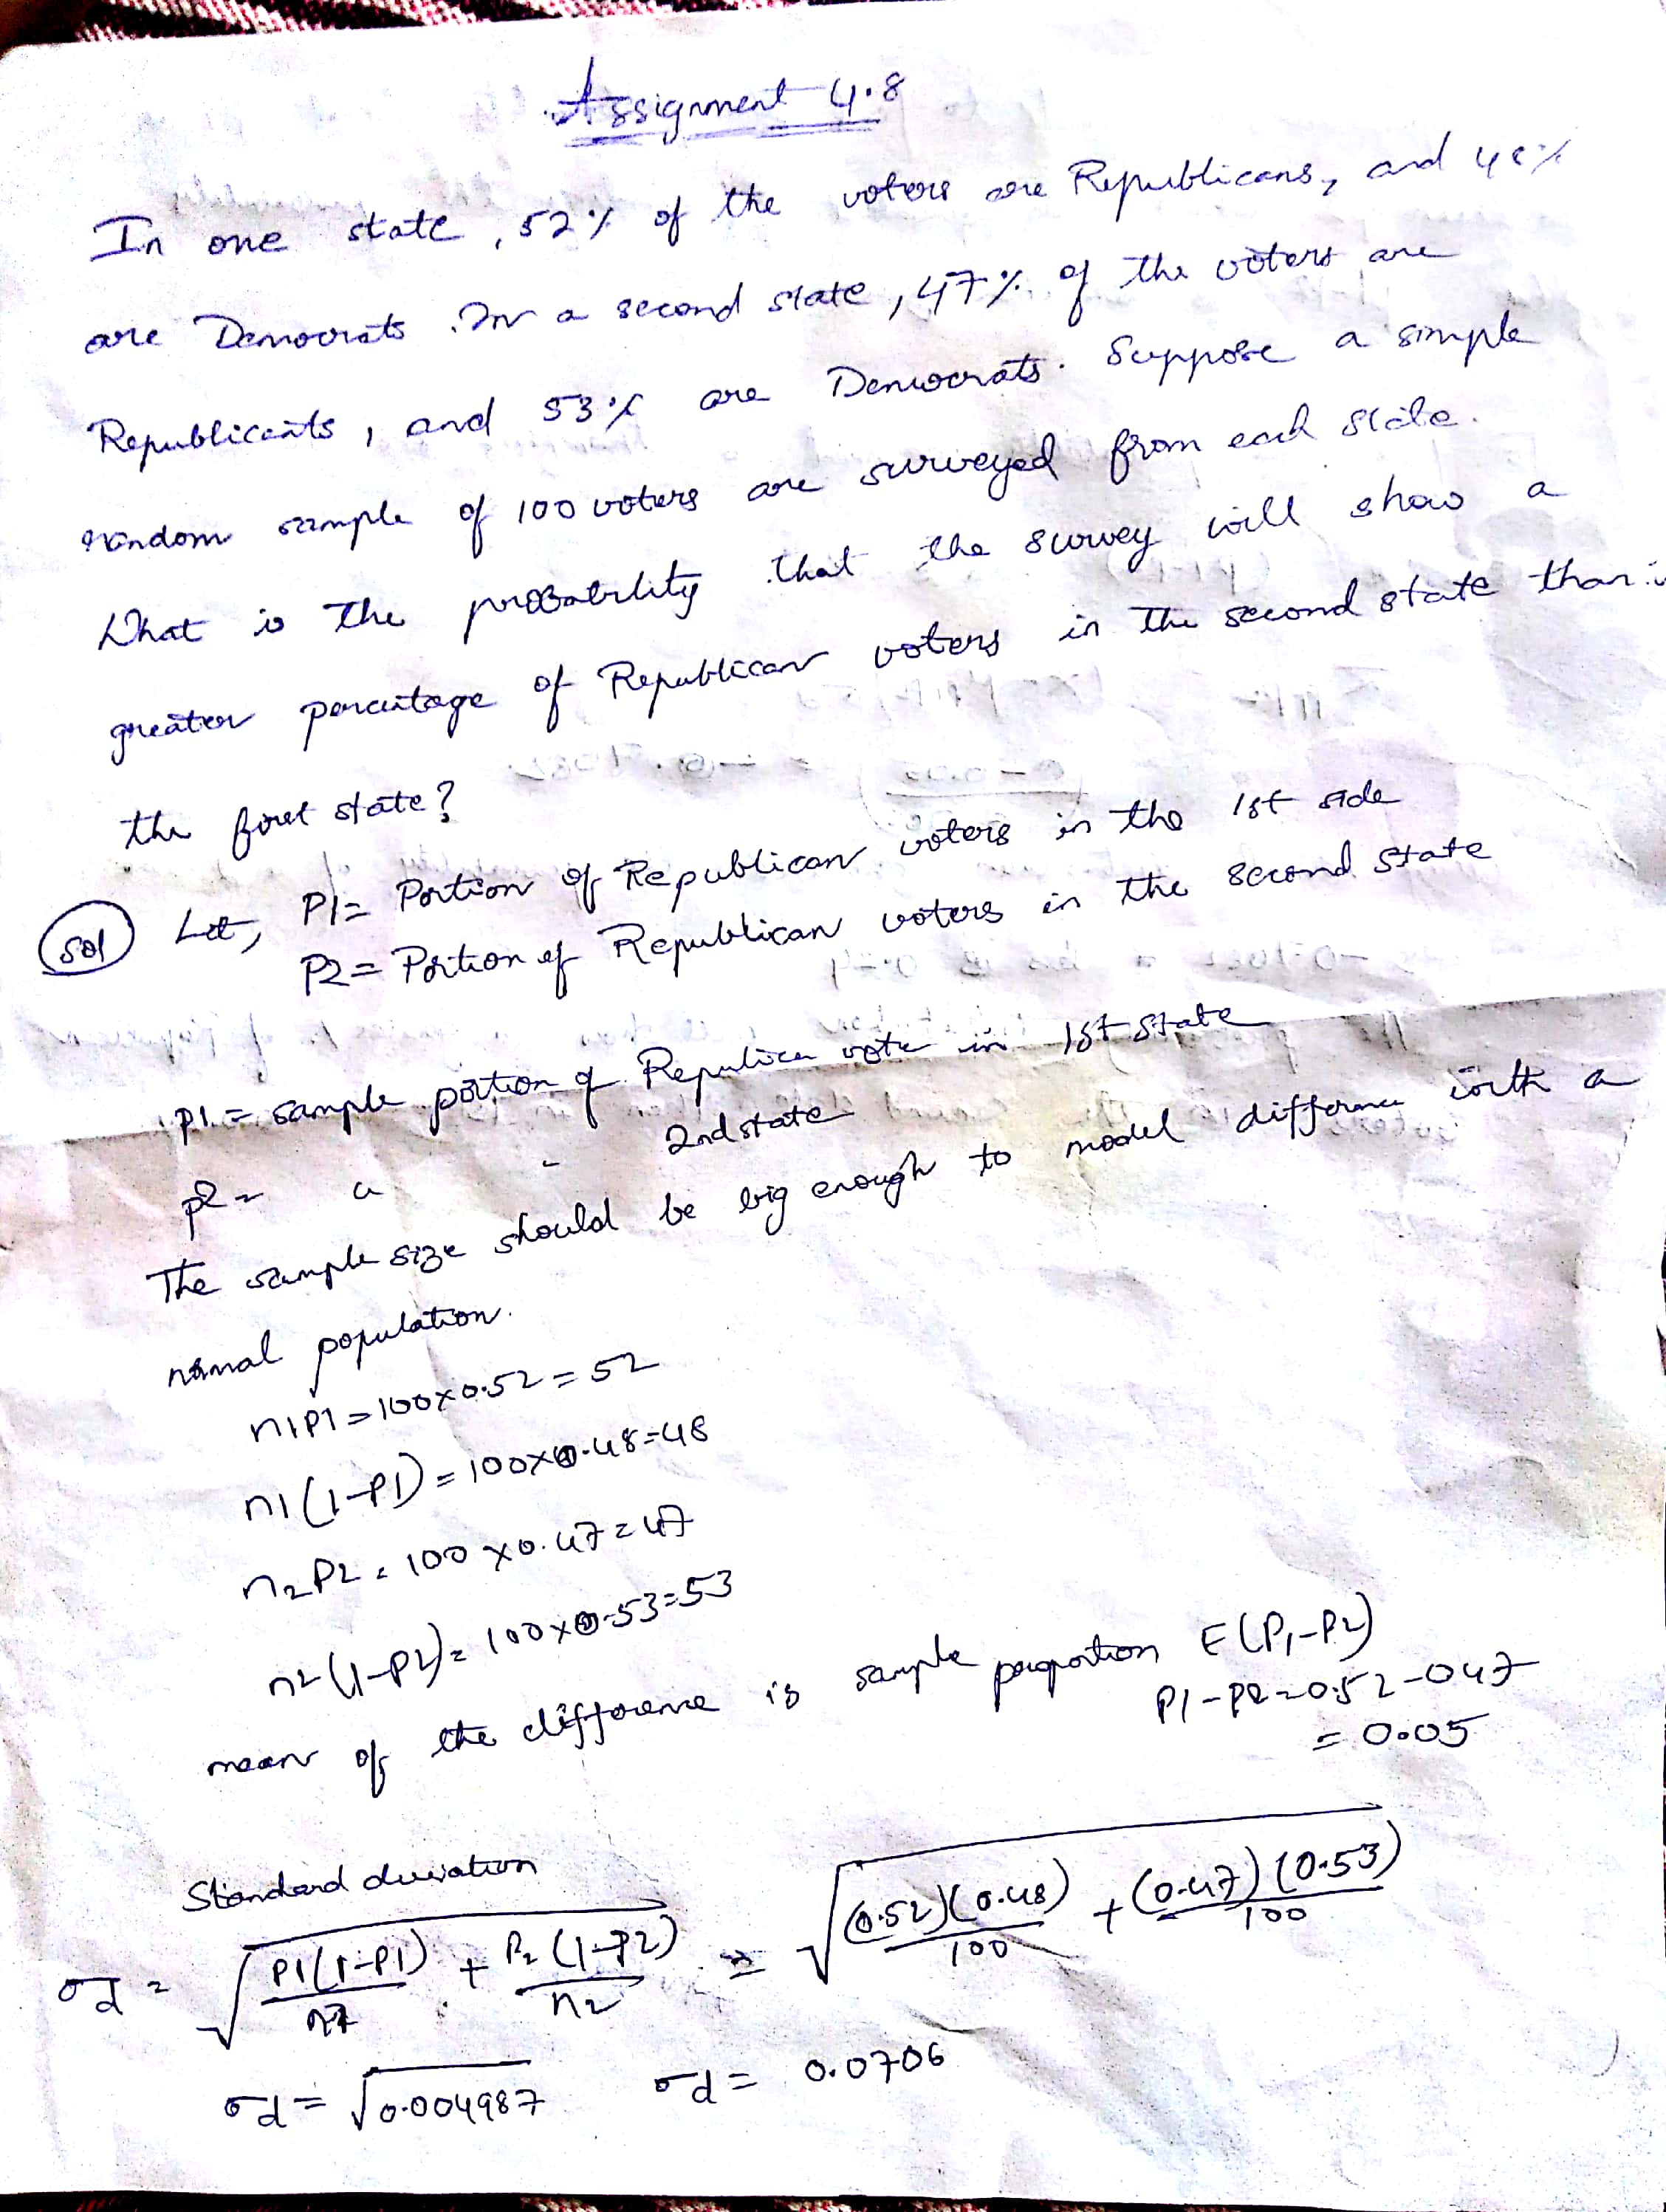 Assignment 4.8
In one state, 52% of the voters are Republicans, and 48%
are Democrats. In a second state, 47% of the voters are
Republicants, and 53% are Democrats. Suppose a simple
random sample of 100 voters are surveyed from each state.
What is the probability that the survey will show a
greater percentage of Republican voters in the second state than
the first state?
Sol Let, P1= Portion of Republican voters in the 1st side
P2= Portion of Republican voters in the second State
p1 = sample portion of Republica vote in 1st State
p2 = 2nd state
The sample size should be big enough to model difference with a
normal population.
n1P1=100x0.52=52
n1(1-P1)=100x0.48=48
n2P2=100x0.47=47
n2(1-P2)=100x0.53=53
mean of the difference is sample proportion E(P1-P2)
P1-P2=0.52-047
=0.05
Standard deviation
σd = √ P1(1-P1)/n1 + P2(1-P2)/n2 = √ (0.52)(0.48)/100 + (0.47)(0.53)/100
σd = √0.004987 σd = 0.0706